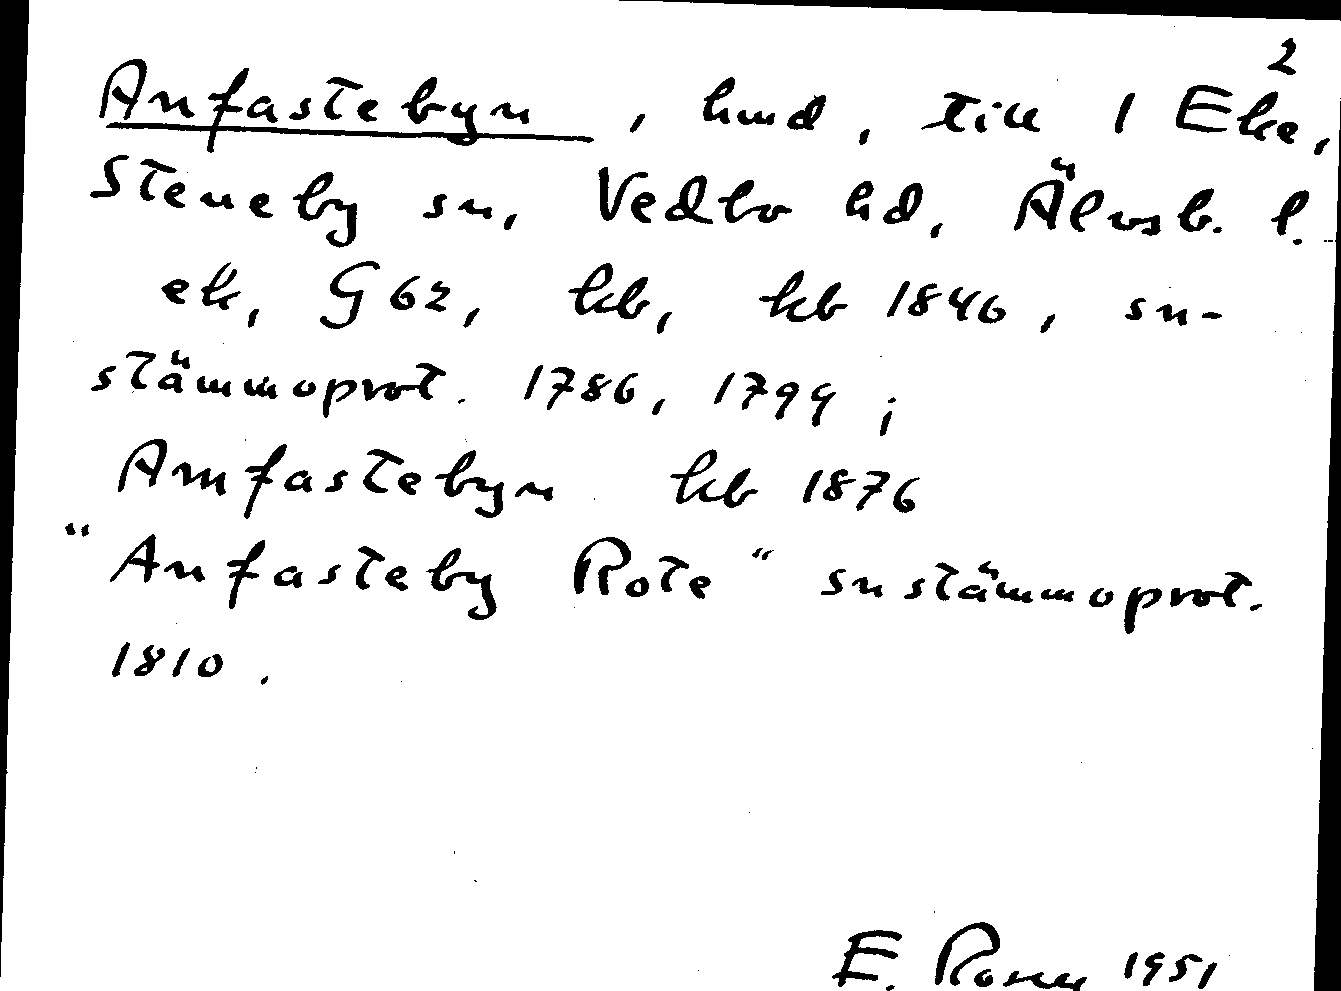 2
Anfastebyn, hmd, till 1 Eke,
Steneby sn, Vedbo hd, Älvsb. l.
ek, G62, kb, kb 1846, sn-
stämmoprot. 1786, 1799;
Amfastebyn kb 1876
"Anfasteby Rote" snstämmoprot.
1810.
E. Rosen 1951